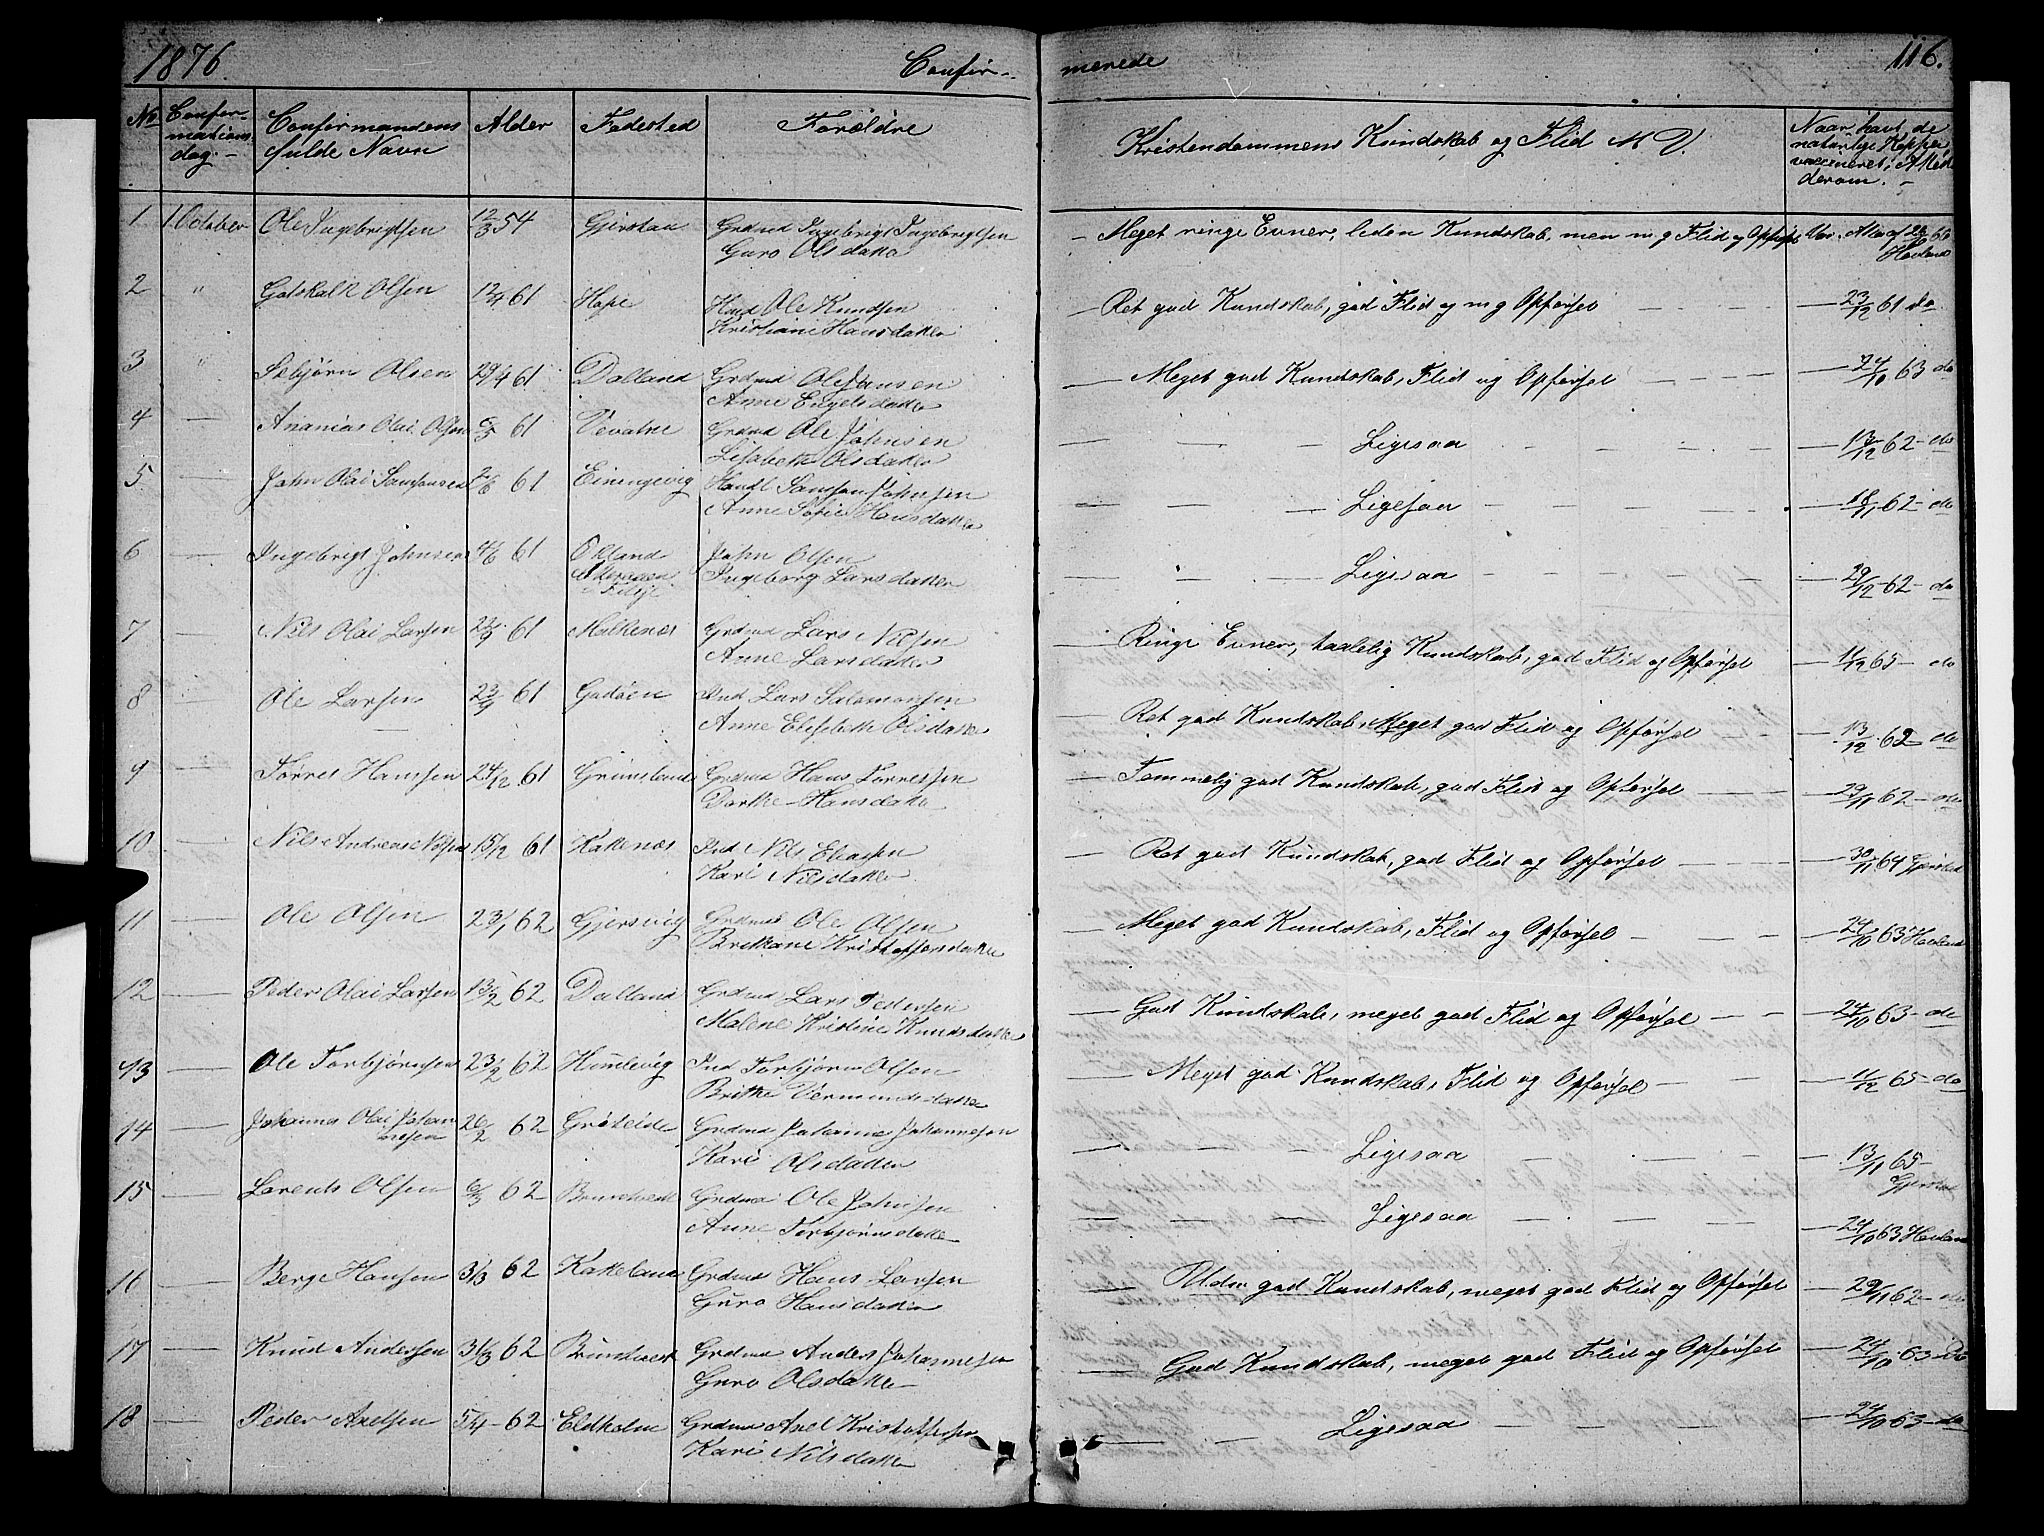 1876. Confir- merede 116.
No Confir-mations dag.- Confirmandens fulde Navn Alder Fødested Forældre Kristendommens Kundskab og Flid M V. Naar havt de naturlige Kopper vaccineret, Attest derom. -
1 1 October Ole Ingebrigtsen 12/3 54 Gjerstau Grdmd Ingebrigt Ingebrigtsen — Meget ringe Evner, liden Kundskab, men m g Flid og Opførsel
Guro Olsdatter Havland
2 " Gotskalk Olsen 12/4 61 Hope Hmd Ole Knudsen Ret god Kundskab, god Flid og m g Opførsel — — — 23/12 61 do
Kristiane Hansdatter
3 " Sebjørn Olsen 29/4 61 Dalland Grdmd Ole Hansen — Meget god Kundskab, Flid og Opførsel — — — 24/10 63 do
Anne Engelsdatter
4 — Ananias Olai Olsen 61 Grdmd Ole Johnsen — Ligesaa — 13/12 62 - do
Lisabeth Olsdatter
5 — John Olai Samsonsen 61 Einingevig Samson Johnsen — Ligesaa — 18/11 62 - do
Anne Sofie Hansdatter
6 — Ingebrigt Johnsen 4/6 61 Økland John Olsen — Ligesaa — 29/12 62 - do
Ingeborg Larsdatter
7 — Nils Olai Larsen 22/9 61 Malkenes Grdmd Lars Nilsen — Ringe Evner, taalelig Kundskab, god Flid og Opførsel — 11/12 65 - do
Anne Larsdatter
8 — Ole Larsen 23/9 61 Godøen Ind Lars Salomonsen — Ret god Kundskab, Meget god Flid og Opførsel — 13/12 62 - do
Anne Elisabeth Olsdatter
9 — Tørres Hansen 24/12 61 Grimsland Grdmd Hans Tørressen — Temmelig god Kundskab, god Flid og Opførsel — 29/11 62 - do
Dorthe Hansdatter
10 — Nils Andreas Nilsen 15/12 61 Kakenes Ind Nils Eliasen — Ret god Kundskab, god Flid og Opførsel — 30/11 64 Gjerstad
Kari Nilsdatter
11 — Ole Olsen 23/1 62 Gjersvig Grdmd Ole Olsen — Meget god Kundskab, Flid og Opførsel — 24/10 63 Havland
Brithane Kristoffersdatter
12 — Peder Olai Larsen 13/2 62 Dalland Grdmd Lars Pedersen — God Kundskab, meget god Flid og Opførsel — 24/10 63 - do
Malene Kristine Knudsdatter
13 — Ole Torbjørnsen 23/2 62 Humlevig Ind Torbjørn Olsen — Meget god Kundskab, Flid og Opførsel — 11/12 65 - do
Brithe Vermundsdatter
14 — Johannes Olai Johannesen 26/2 62 Grøteide Grdmd Johannes Johannesen — Ligesaa — 13/11 65 - Gjerstad
Kari Olsdatter
15 — Lorents Olsen 6/3 62 Brundtveit Grdmd Ole Johnsen — Ligesaa — 24/10 63 Havland
Anne Torbjørnsdatter
16 — Berge Hansen 3/3 62 Kakeland Grdmd Hans Larsen — Udm god Kundskab, meget god Flid og Opførsel — 29/11 62 - do
Guro Hansdatter
17 — Knud Andersen 31/3 62 Brundtveit Grdmd Anders Johannesen — God Kundskab, meget god Flid og Opførsel — 24/10 63 - Do
Guro Olsdatter
18 — Peder Axelsen 5/4 - 62 Eldholm Grdmd Axel Kristoffersen — Ligesaa — 24/10 63 - do
Kari Nilsdatter